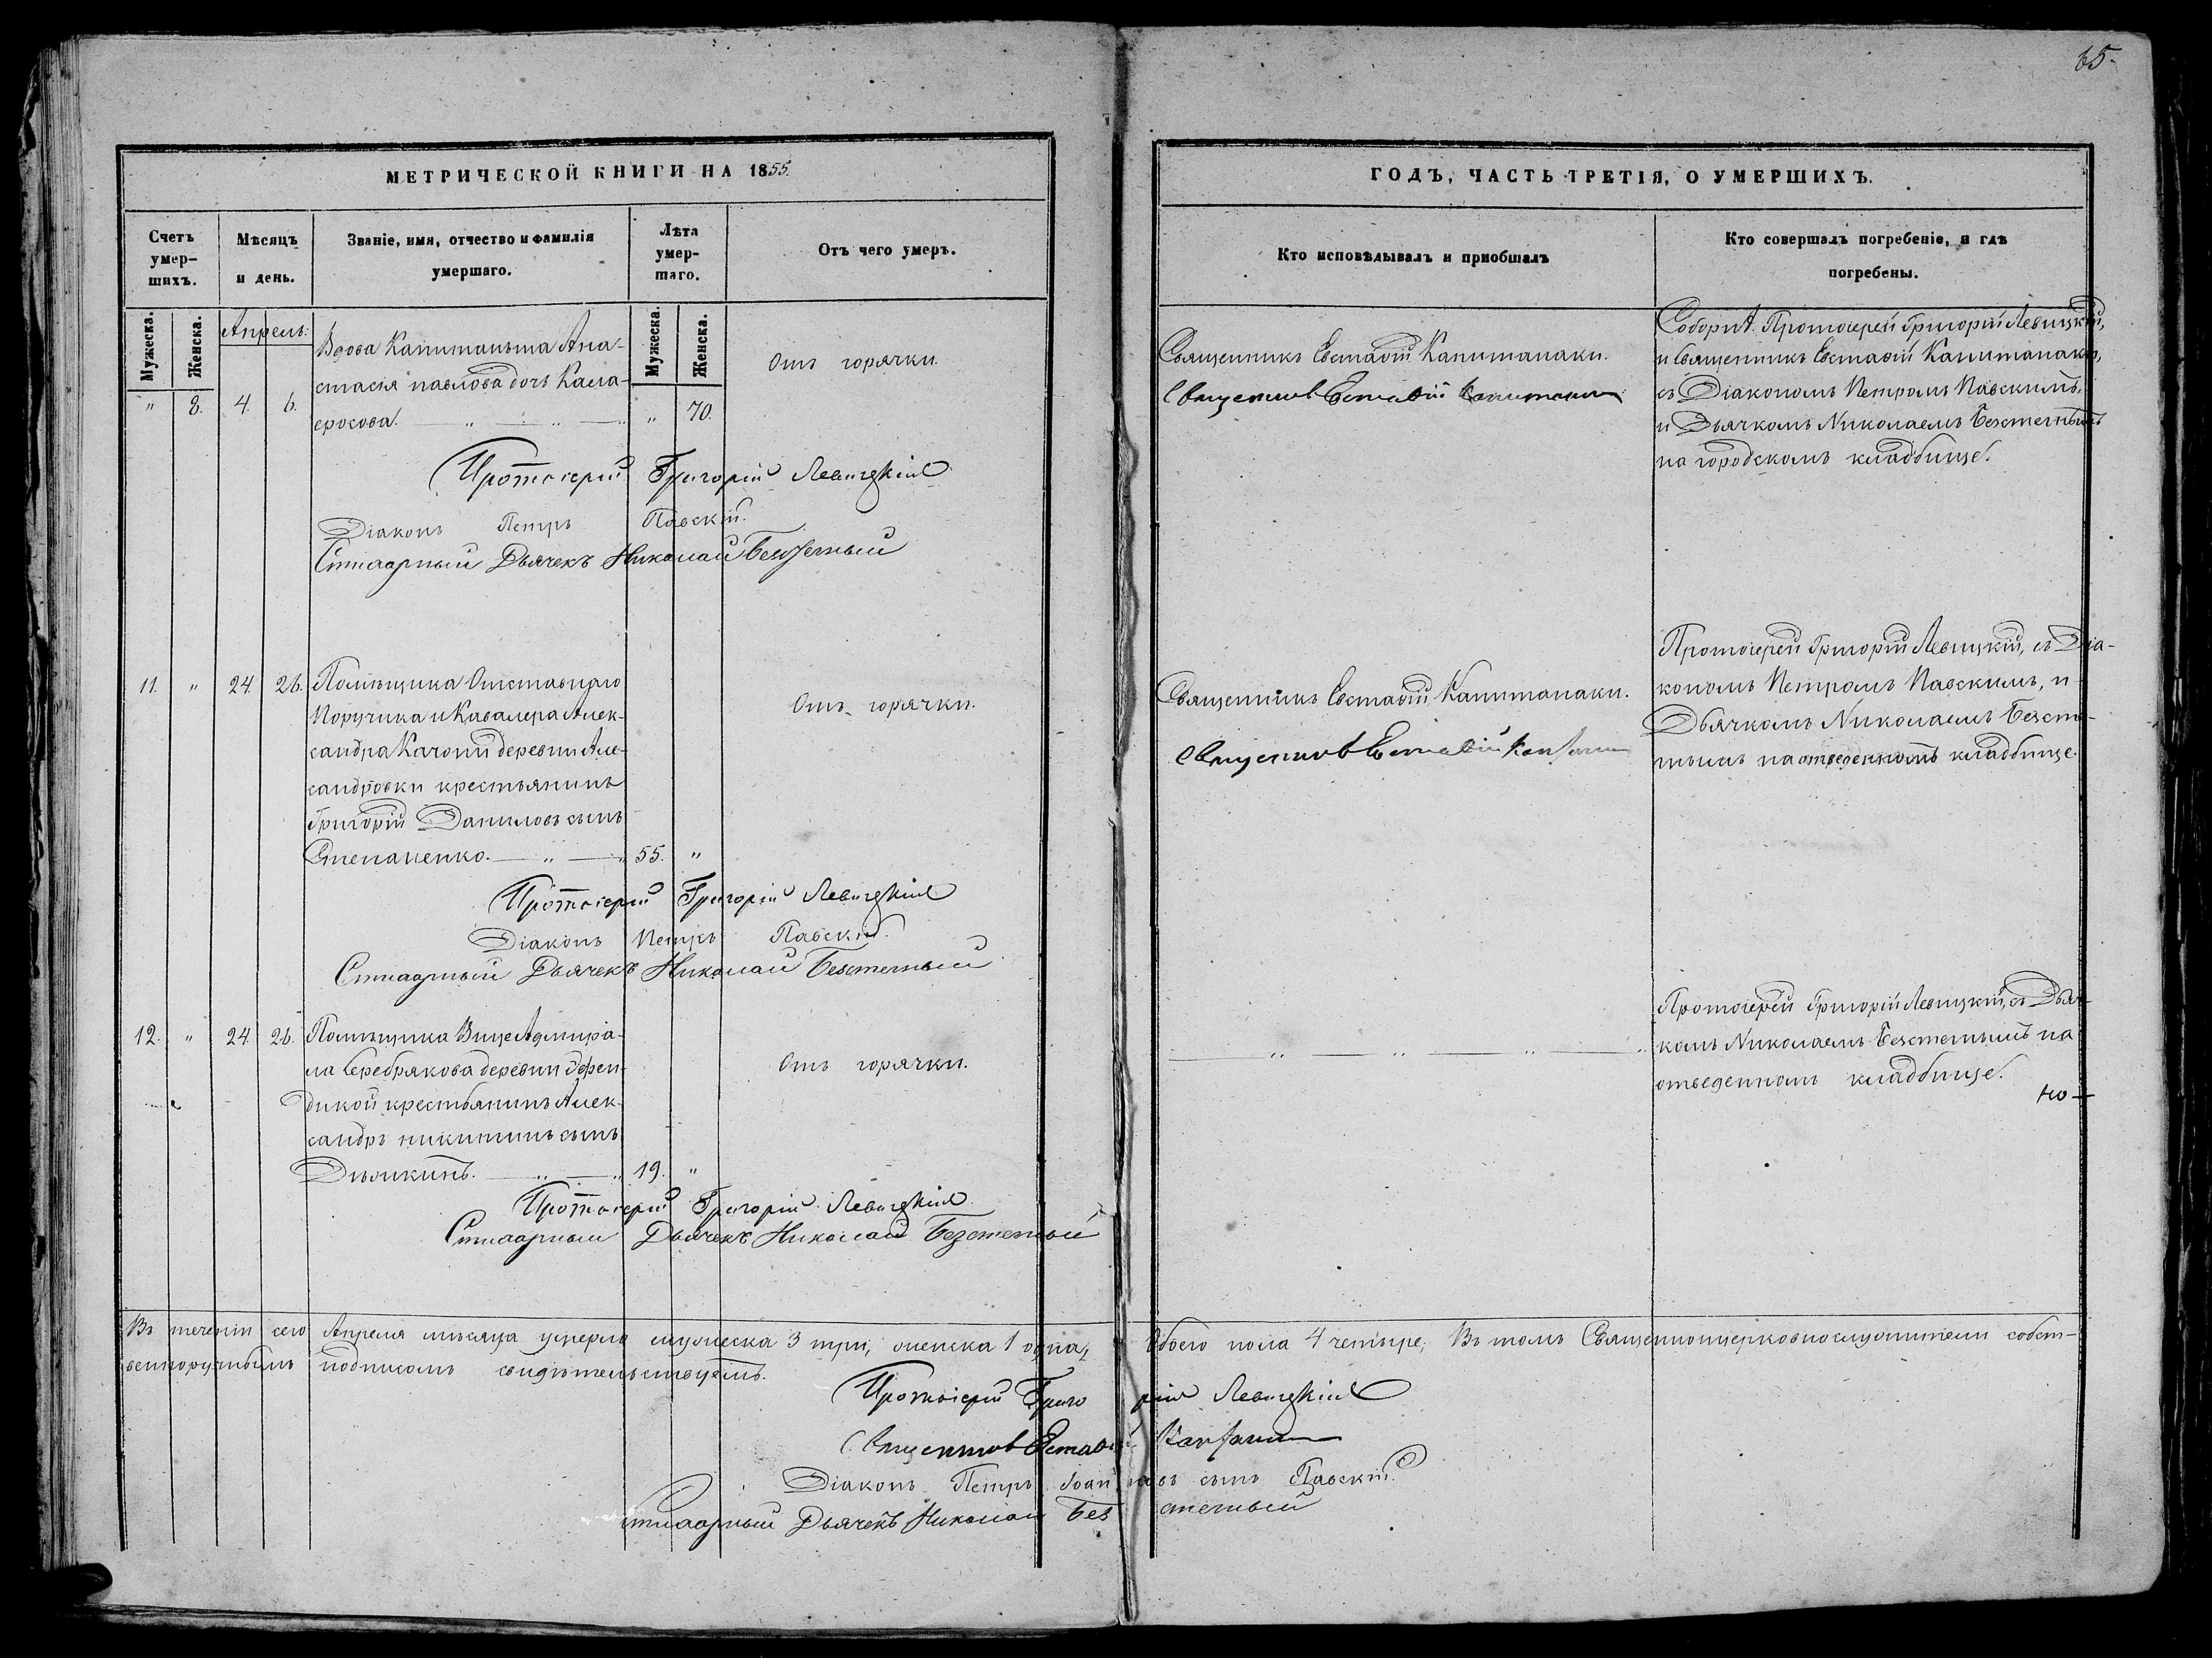 65.
МЕТРИЧЕСКОЙ КНИГИ НА 1855.
ГОДЪ, ЧАСТЬ ТРЕТІЯ, О УМЕРШИХЪ.
Счетъ умер-шихъ.
Мѣсяцъ и день.
Званіе, имя, отчество и фамилія умершаго.
Лѣта умер-шаго.
Отъ чего умеръ.
Кто исповѣдывалъ и приобщалъ
Кто совершалъ погребеніе, и гдѣ погребены.
Мужеска.
Женска.
Мужеска.
Женска.
Апрель:
" 8. 4. 6.
Вдова Капитанъша Ана-
стасія павлова дочь
" 70.
Отъ горячки.
Священникъ Евстафій Капитанаки.
Священникъ Евстафій
Протоіерей Григорій Левицкій,
и Священникъ Евстафій Капитанаки,
съ Діакономъ Петромъ Павскимъ,
и Дьячкомъ Николаемъ
на городскомъ кладбище.
Протоіерей Григорій Левицкій
Діаконъ Петръ Павскій.
Стихарный Дьячекъ Николай Безстетный
11. " 24. 26.
Помѣщика Отставнаго
Поручика и Кавалера Алек-
сандра Качони деревни Але-
сандровки крестьянинъ
Григорій Даниловъ сынъ
Степаненко. " " 55. "
Отъ горячки.
Священникъ Евстафій Капитанаки.
Священникъ Евстафій
Протоіерей Григорій Левицкій, съ Діа-
кономъ Петромъ Павскимъ, и
Дьячкомъ Николаемъ Безсте-
тнымъ на отведенномъ кладбище.
Протоіерей Григорій Левицкій
Діаконъ Петръ Павскій.
Стихарный Дьячекъ Николай Безстетный
12. " 24. 26.
Помѣщика Вице Адмира-
ла Серебрякова деревни Эфен-
дикой крестьянинъ Алек-
сандръ никитинъ сынъ
19. "
Отъ горячки.
" " " "
Протоіерей Григорій Левицкій, съ Дьяч-
комъ Николаемъ Безстетнымъ на
отведенномъ кладбище.
Протоіерей Григорій Левицкій
Стихарный Дьячекъ Николай Безстетный
Въ теченіи сего Апреля мѣсяца умерло мужеска 3 три, женска 1 одна, Обоего пола 4 четыре; Въ томъ Священноцерковнослужители собст-
венноручнымъ подписомъ свидѣтельствуемъ.
Протоіерей Григорій Левицкій
Священникъ Евстафій
Діаконъ Петръ Іоанновъ сынъ Павскій.
Стихарный Дьячекъ Николай Безстетный